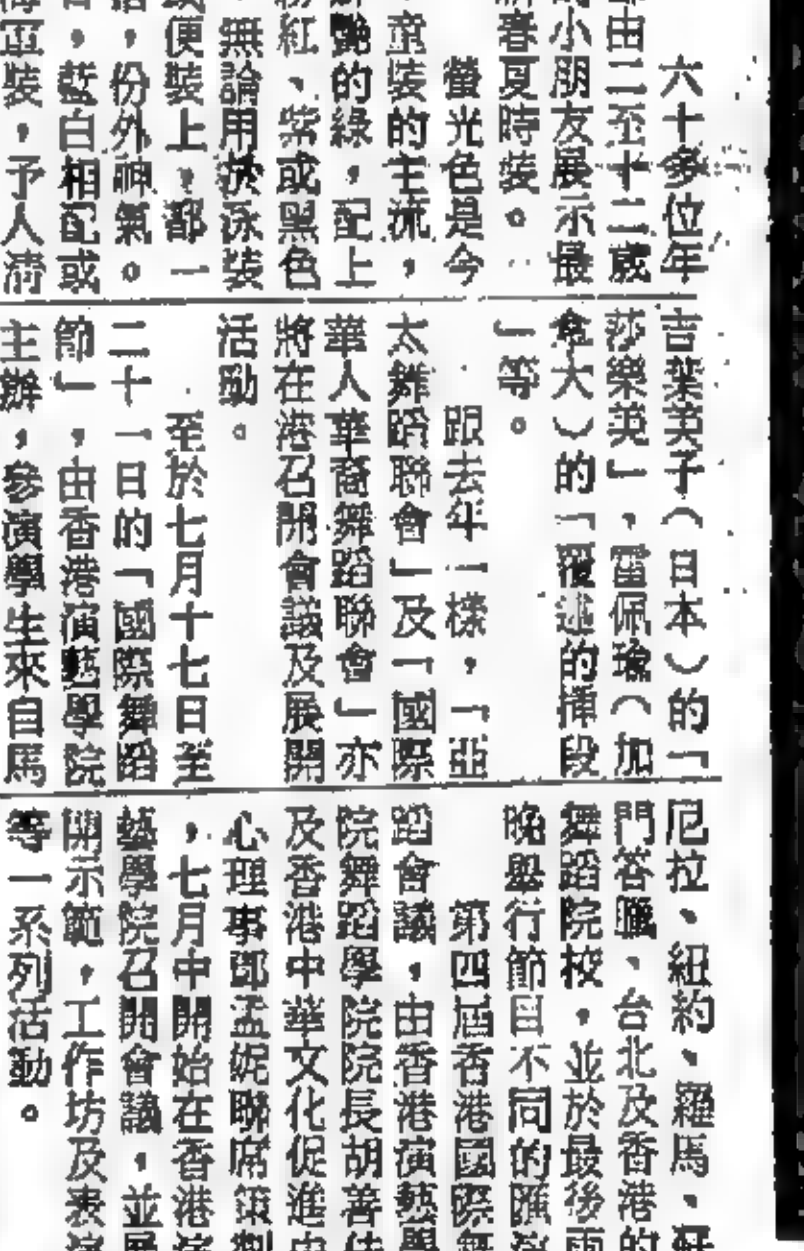 六十多位年
由二至十二歲
小朋友展示最
春夏時裝。
螢光色是今
童裝的主流，
艷的綠，配上
紅、紫或黑色
無論用於泳裝
便裝上，都一
，份外神氣。
，藍白相配或
裝，予人清
吉葉美子（日本）的「
莎樂美」，雷佩瑜（加
拿大）的「覆述的插段
」等。
跟去年一樣，「亞
太舞蹈聯會」及「國際
華人華裔舞蹈聯會」亦
將在港召開會議及展開
活動。
至於七月十七日至
二十一日的「國際舞蹈
節」，由香港演藝學院
主辦，參演學生來自馬
尼拉、紐約、羅馬、
門答臘、台北及香港的
舞蹈院校，並於最後兩
晚舉行節目不同的匯演
第四屆香港國際舞
蹈會議，由香港演藝學
院舞蹈學院院長胡善佳
及香港中華文化促進中
心理事鄧孟妮聯席策劃
，七月中開始在香港演
藝學院召開會議，並展
開示範，工作坊及表演
等一系列活動。